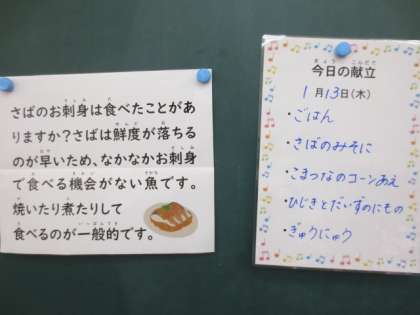 さばのお刺身は食べたことがあ
りますか?さばは鮮度が落ちる
のが早いため、なかなかお刺身
で食べる機会がない魚です。
焼いたり煮たりして
食べるのが一般的です。
今日の献立
1月13日(木)
・ごはん
・さばのみそに
・こまつなのコーンあえ
・ひじきとだいずのにもの
・ぎゅうにゅう